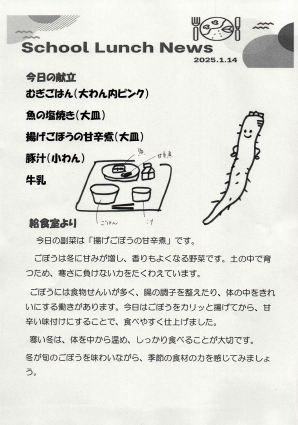 School Lunch News
2025.1.14
今日の献立
むぎごはん(大わん内ピンク)
魚の塩焼き(大皿)
揚げごぼうの甘辛煮(大皿)
豚汁(小わん)
牛乳
魚
甘辛煮
ごはん
汁
給食室より
今日の副菜は「揚げごぼうの甘辛煮」です。
ごぼうは冬に甘みが増し、香りもよくなる野菜です。土の中で育
つため、寒さに負けない力をたくわえています。
ごぼうには食物せんいが多く、腸の調子を整えたり、体の中をきれ
いにする働きがあります。今日はごぼうをカリッと揚げてから、甘
辛い味付けにすることで、食べやすく仕上げました。
寒い冬は、体を中から温め、しっかり食べることが大切です。
冬が旬のごぼうを味わいながら、季節の食材の力を感じてみましょ
う。